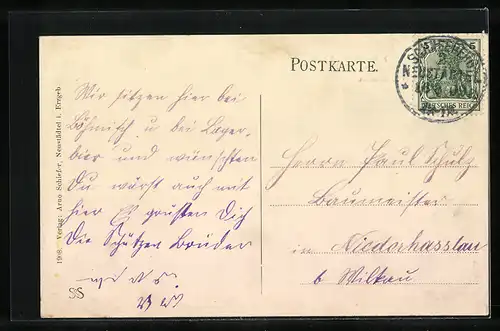 POSTKARTE.
SCHNEEBERG
NEUSTÄDTEL
DEUTSCHES REICH
Wir sitzen hier bei
Böhmisch u bei Lager-
bier und wünschten
Du wärst auch mit
hier Es grüßen Dich
Die Schützen Brüder
Herrn Paul Schulz
Baumeister
in Niederhasslau
b Wilkau
1908. Verlag: Arno Schieder, Neustädtel i. Erzgeb.